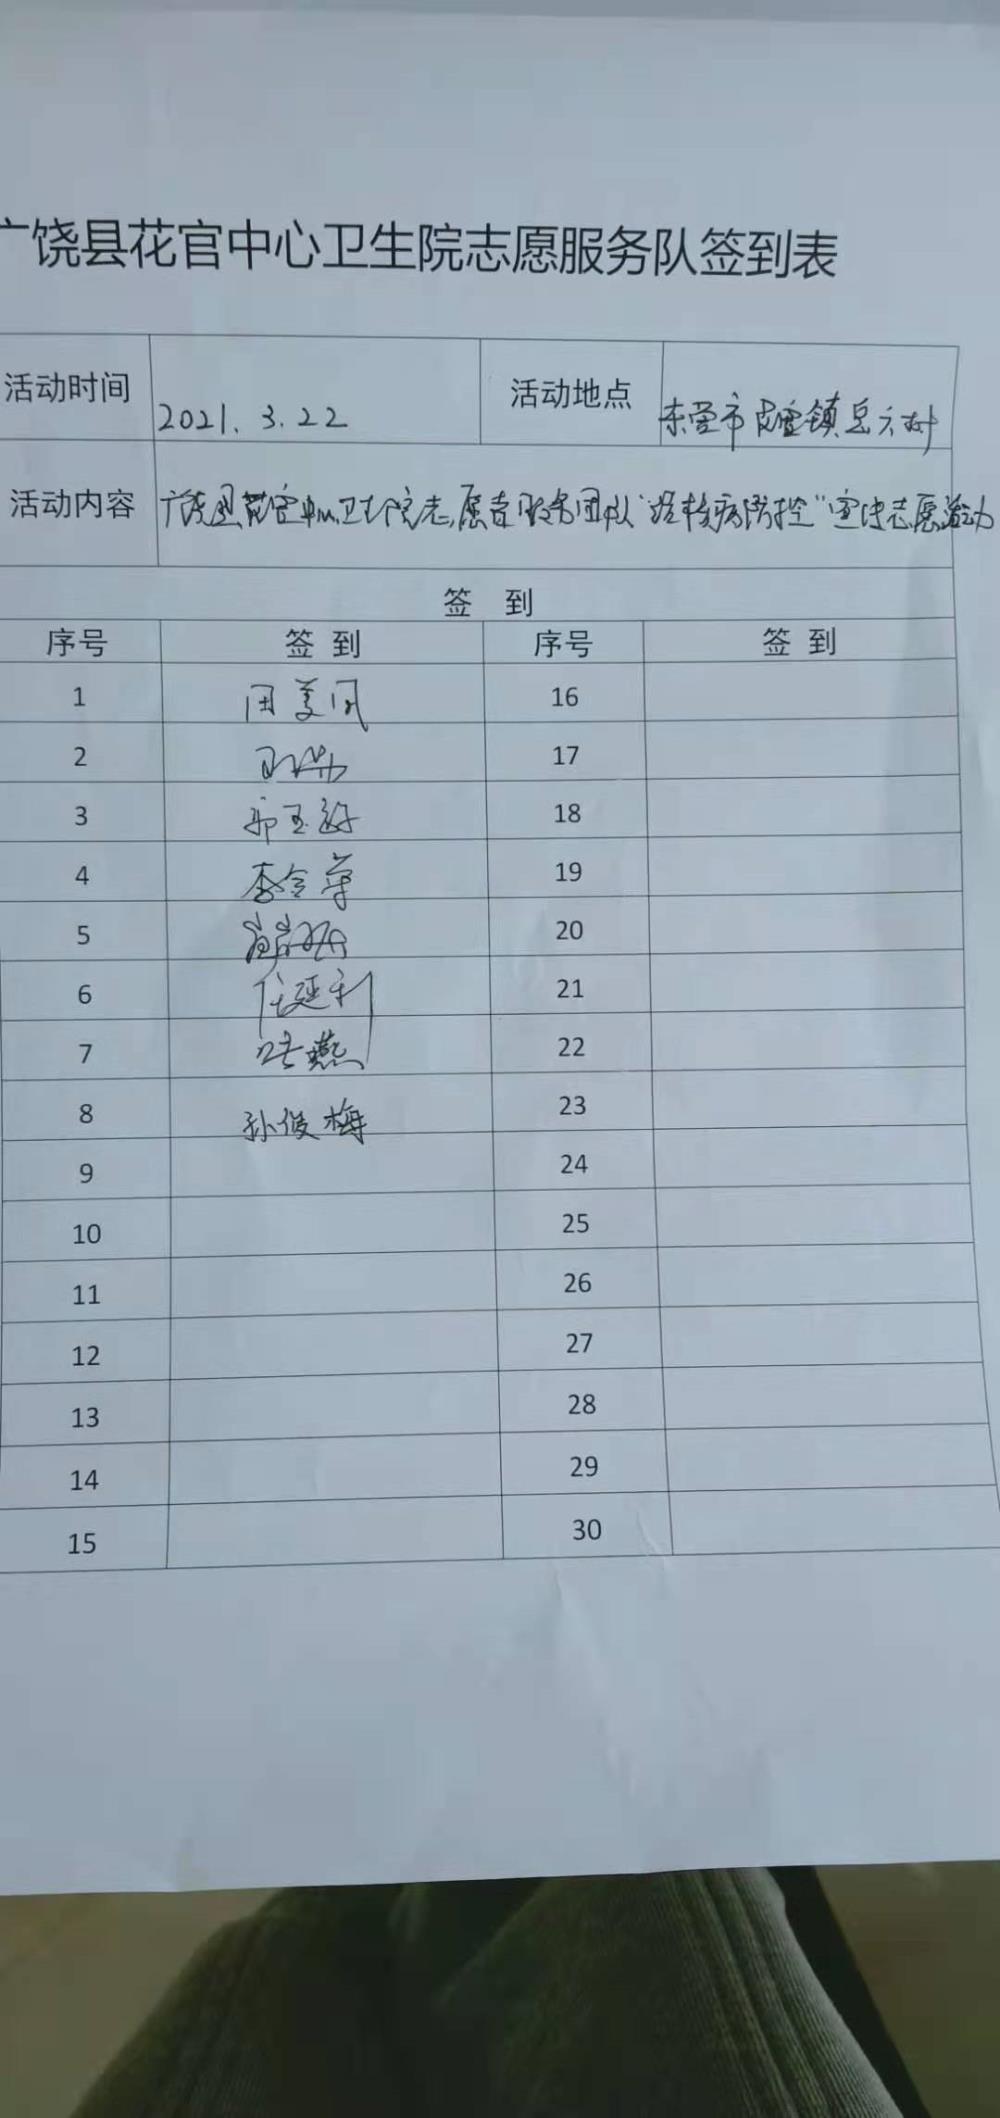 广饶县花官中心卫生院志愿服务队签到表
活动时间 2021.3.22 活动地点 东营市花官镇岳六村
活动内容 广饶县花官中心卫生院志愿者服务团队“结核病防控”宣传志愿活动
签 到
序号 签 到 序号 签 到
1 田美凤 16
2 17
3 郭玉 18
4 李令 19
5 20
6 任延利 21
7 燕 22
8 孙俊梅 23
9 24
10 25
11 26
12 27
13 28
14 29
15 30